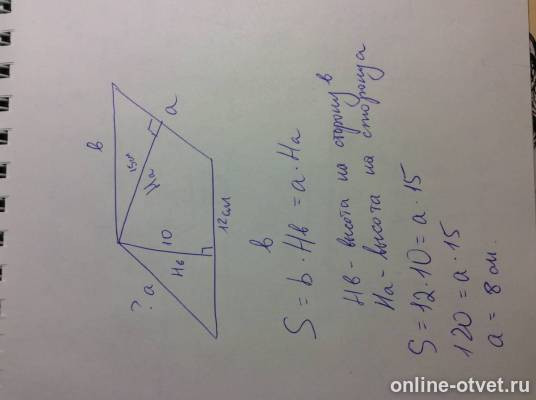 в
a
15см
Ha
10
Hв
? a
12см
в
S = b · Hв = a · Ha
Hв - высота на сторону в
Ha - высота на сторону а
S = 12 · 10 = a · 15
120 = a · 15
a = 8 см.
online-otvet.ru